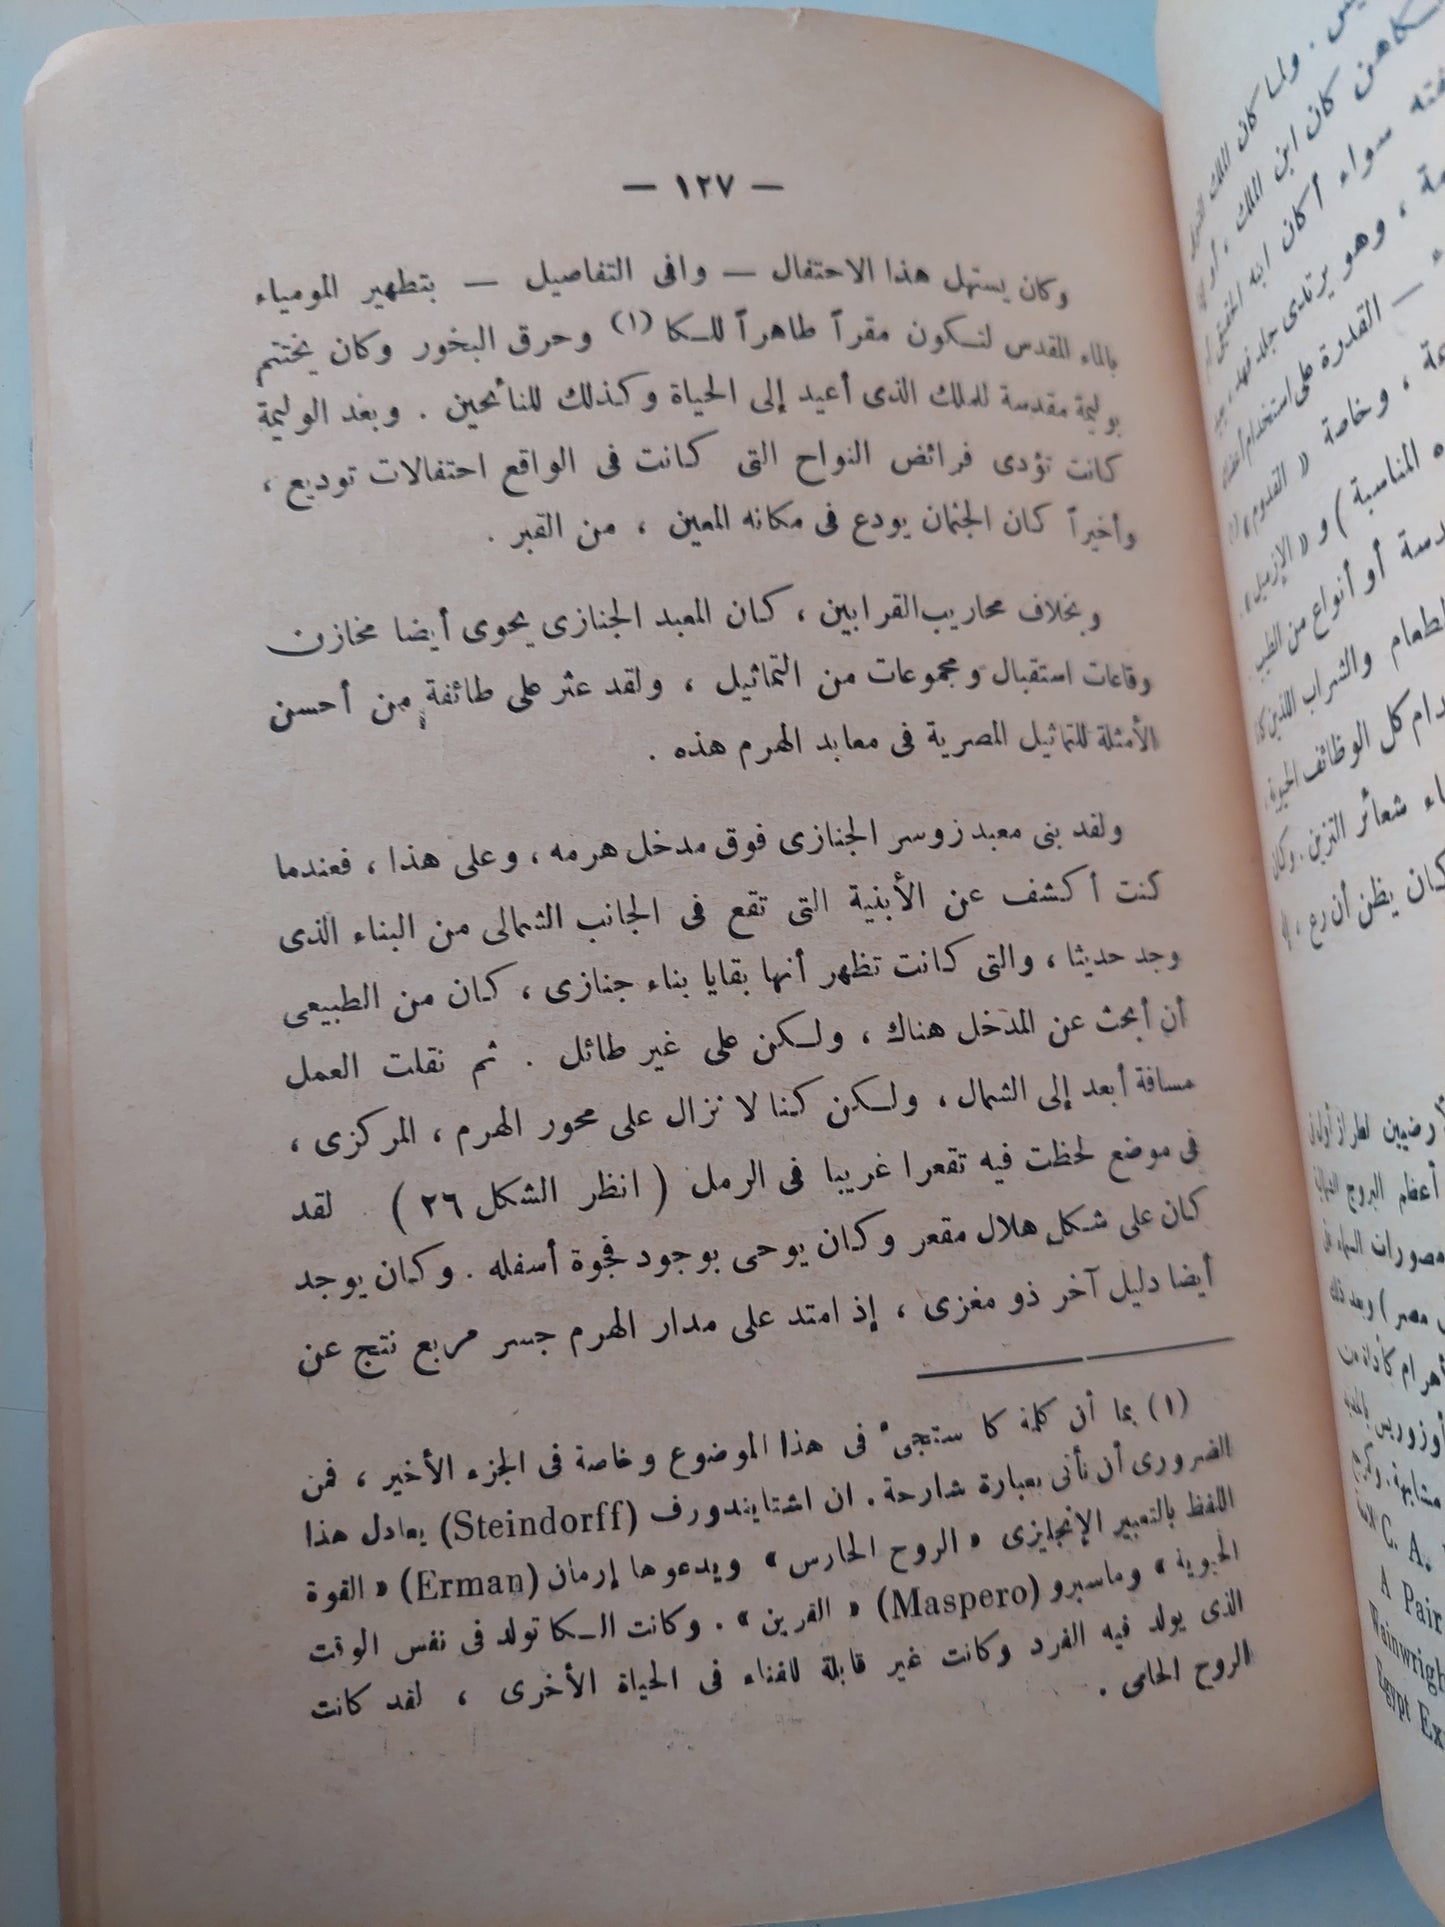 — ١٢٧ —
وكان يستهل هذا الاحتفال — وافى التفاصيل — بتطهير المومياء
بالماء المقدس لتكون مقراً طاهراً للكا (١) وحرق البخور وكان يختتم
بوليمة مقدسة للملك الذى أعيد إلى الحياة وكذلك للنائحين . وبعد الوليمة
كانت تؤدى فرائض النواح التى كانت فى الواقع احتفالات توديع ،
وأخيراً كان الجثمان يودع فى مكانه المعين ، من القبر .
وبخلاف محاريب القرابين ، كان المعبد الجنازى يحوى أيضا مخازن
وقاعات استقبال ومجموعات من التماثيل ، ولقد عثر على طائفة من أحسن
الأمثلة للتماثيل المصرية فى معابد الهرم هذه .
ولقد بنى معبد زوسر الجنازى فوق مدخل هرمه ، وعلى هذا ، فعندما
كنت أكشف عن الأبنية التى تقع فى الجانب الشمالى من البناء الذى
وجد حديثا ، والتى كانت تظهر أنها بقايا بناء جنازى ، كان من الطبيعى
أن أبحث عن المدخل هناك ، ولكن على غير طائل . ثم نقلت العمل
مسافة أبعد إلى الشمال ، ولكن كنا لا نزال على محور الهرم ، المركزى ،
فى موضع لحظت فيه تقعرا غريبا فى الرمل ( انظر الشكل ٢٦ ) لقد
كان على شكل هلال مقعر وكان يوحى بوجود فجوة أسفله . وكان يوجد
أيضا دليل آخر ذو مغزى ، إذ امتد على مدار الهرم جسر مربع نتج عن
(١) بما أن كلمة كا ستجىء فى هذا الموضوع وخاصة فى الجزء الأخير ، فمن
الضرورى أن نأتى بعبارة شارحة . ان اشتايندورف (Steindorff) يعادل هذا
اللفظ بالتعبير الإنجليزى « الروح الحارس » ويدعوها إرمان (Erman) « القوة
الحيوية » وماسبرو (Maspero) « القرين » . وكانت الكا تولد فى نفس الوقت
الذى يولد فيه الفرد وكانت غير قابلة للفناء فى الحياة الأخرى ، لقد كانت
الروح الحامى .
ولما كان الملك
كان ابن الملك ، أو
سواء أكان ابنه الحقيقى
، وهو يرتدى جلد فهد ،
— القدرة على استخدام
، وخاصة « القدوم »
المناسبة ) و « الإزميل » .
أو أنواع من الطيب
والشراب اللذين
كل الوظائف الحيوية
شعائر التزين . وكان
كان يظن أن رع ،
أعظم البروج
مصر ) وبعد ذلك
وأوزوريس
مشابهة .
C. A.
A Pair
Wainwrigh
Egypt Ex